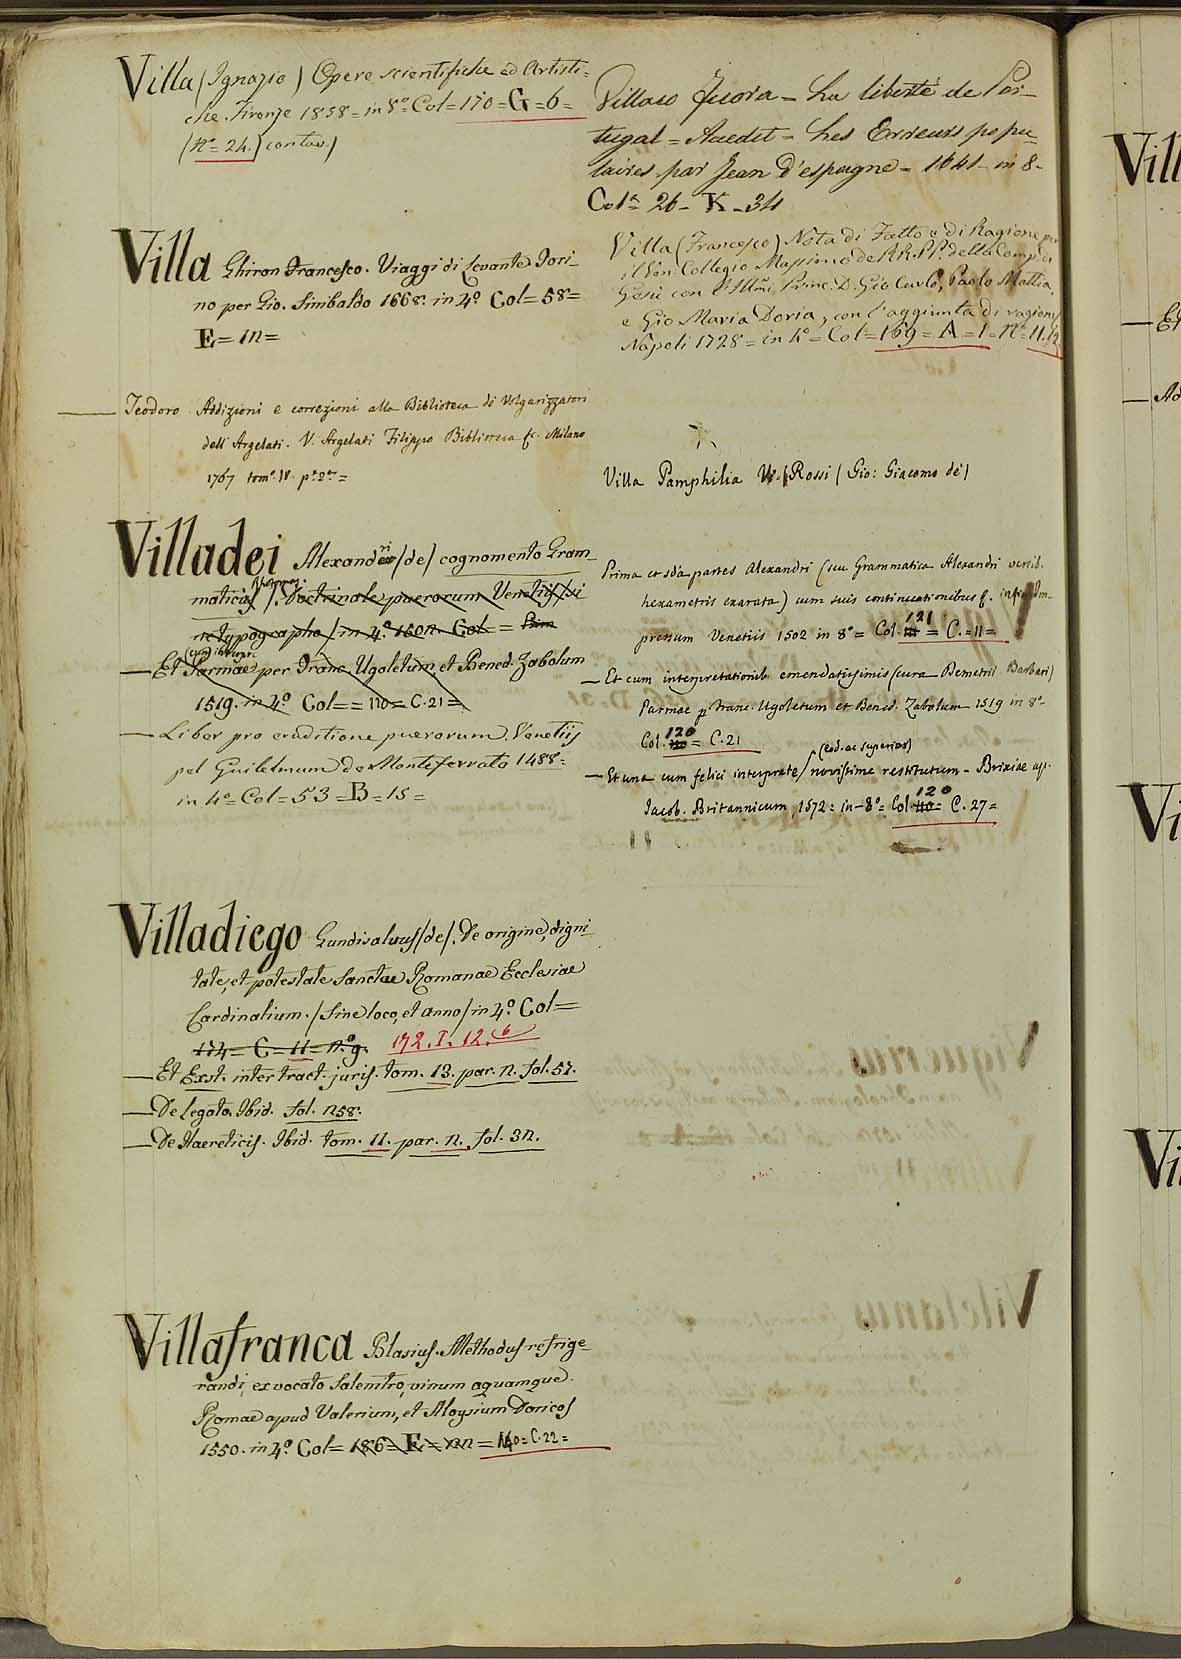 Villa (Ignazio) Opere scientifiche ed Artisti=
che. Firenze 1858 = in 8º = Col = 170 = G = 6 =
(Nº = 24.)
Villa Ghiron Francesco. Viaggi di Levante. Tori-
no per Gio. Sinibaldo 1668. in 4º Col = 58 =
E = 12 =
— Teodoro Addizioni e correzioni alla Biblioteca de Volgarizzatori
dell'Argelati. V. Argelati Filippo Biblioteca &c. Milano
1767 tomº IV. pª 2ª =
Villadei Alexandri /de/ cognomento Gram_
matici /. Doctrinale puerorum Venetiis /si
ne typographo / in 4º 1502. Col =
— Et Parmae per Franc. Ugoletum, et Bened. Zabolum
1519. in 4º Col = = 120 = C. 21 =
— Liber pro eruditione puerorum. Venetiis
pel Guilelmum de Monteferrato 1488 =
in 4º = Col = 53 = B = 15 =
Villadiego Gundisalvus /de/. De origine, digni_
tate, et potestate Sanctae Romanae Ecclesiae
Cardinalium. / Sine loco, et anno / in 4º Col =
174 = C = 11 = nº 9. 172. I. 12. 6
— Et Exst. inter tract. juris. tom. 13. par. 2. fol. 57.
— De Legato. Ibid. fol. 258.
— De Haereticis. Ibid. tom. 11. par. 2. fol. 32.
Villafranca Blasius. Methodus refrige_
randi, ex vocato Salenitro, vinum aquamque.
Romae apud Valerium, et Aloysium Doricos
1550. in 4º Col = 186 = E = 122 = 140 = C. 22 =
La liberté de Por-
tugal = Les Erreurs popu
laires par Jean D'espagne = 1641 - in 8 -
Colª 26 - K - 34
Villa (Francesco) Nota di Fatto e di Ragione per
il Ven. Collegio Massimo de RR. PP. della Comp. di
Gesù con Princ. D. Gio Carlo, Paolo Mattia,
e Gio Maria Doria, con l'aggiunta di ragioni
Napoli 1728 = in 4º = Col = 169 = A = 1 = Nº 11. 12
Villa Pamphilia V. /Rossi (Gio: Giacomo de')
Prima et sda partes Alexandri (seu Grammatica Alexandri versib.
hexametris exarata) cum suis continuationibus &. Im-
pressum Venetiis 1502 in 8º = Col. 121 = C. = 11 =
— Et cum interpretationib. emendatissimis (cura Demetrii Barbari)
Parmae p Franc. Ugoletum et Bened. Zabolum 1519 in 8º -
Col. 120 = C. 21
— Et una cum felici interprete / (eod. ac superius) novissime restitutum - Brixiae ap.
Jacob. Britannicum, 1572 = in - 8º = Col 120 = C. 27 =